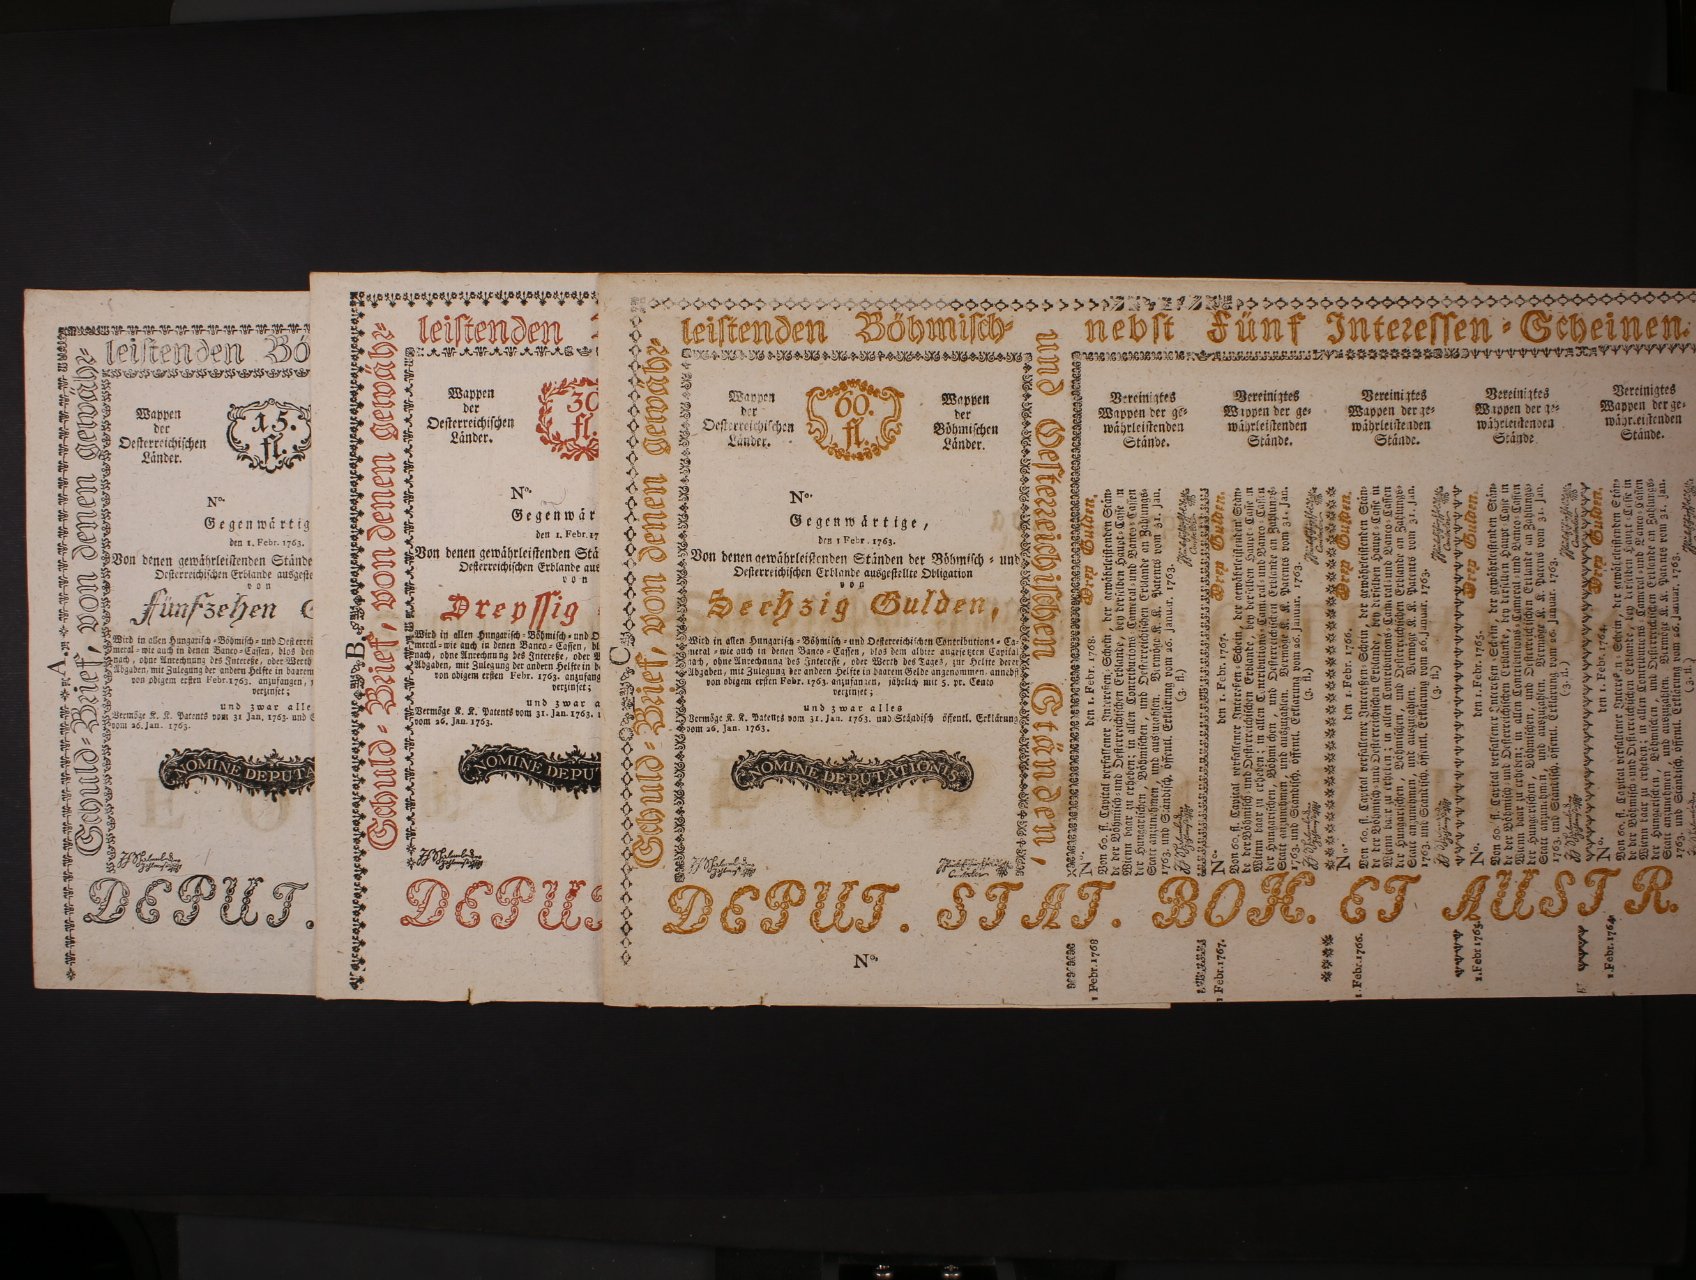 A.
Schuld-Brief, von denen gewähr-
leistenden Bö
Wappen
der
Oesterreichischen
Länder.
15.
fl.
No.
Gegenwärtig
den 1. Febr. 1763.
Von denen gewährleistenden Stände
Oesterreichischen Erblande ausgeste
von
Fünfzehen G
Wird in allen Hungarisch-Böhmisch- und Oesterrei
meral- wie auch in denen Banco-Cassen, blos den
nach, ohne Anrechnung des Interesse, oder Werth
Abgaben, mit Zulegung der andern Helfte in baare
von obigem ersten Febr. 1763. anzufangen,
verzinset;
und zwar alle
Vermöge K. K. Patents vom 31 Jan. 1763. und
vom 26. Jan. 1763.
NOMINE DEPUTA
DEPUT.
B.
Schuld-Brief, von denen gewähr-
leistenden
Wappen
der
Oesterreichischen
Länder.
30
fl.
No.
Gegenwär
den 1. Febr. 17
Von denen gewährleistenden Stä
Oesterreichischen Erblande aus
von
Dreyssig
Wird in allen Hungarisch-Böhmisch- und O
meral- wie auch in denen Banco-Cassen, bl
nach, ohne Anrechnung des Interesse, oder W
Abgaben, mit Zulegung der andern Helfte in
von obigem ersten Febr. 1763. anzufang
verzinset;
und zwar a
Vermöge K. K. Patents vom 31. Jan. 1763.
vom 26. Jan. 1763.
NOMINE DEPU
DEPUT
C.
Schuld-Brief, von denen gewähr-
leistenden Böhmisch-
und Oesterreichischen Ständen,
nebst Fünf Interessen-Scheinen.
Wappen
der
Oesterreichischen
Länder.
60.
fl.
Wappen
der
Böhmischen
Länder.
No.
Gegenwärtige,
den 1 Febr. 1763.
Von denen gewährleistenden Ständen der Böhmisch- und
Oesterreichischen Erblande ausgestellte Obligation
von
Sechzig Gulden,
Wird in allen Hungarisch-Böhmisch- und Oesterreichischen Contributions-Ca-
meral- wie auch in denen Banco-Cassen, blos dem allhier angesetzten Capital
nach, ohne Anrechnung des Interesse, oder Werth des Tages, zur Helfte derer
Abgaben, mit Zulegung der andern Helfte in baarem Gelde angenommen, annebst
von obigem ersten Febr. 1763. anzufangen, jährlich mit 5. pr. Cento
verzinset;
und zwar alles
Vermöge K. K. Patents vom 31. Jan. 1763. und Ständisch öffentl. Erklärung
vom 26. Jan. 1763.
NOMINE DEPUTATIONIS
DEPUT. STAT. BOH. ET AUSTR.
No.
Vereinigtes
Wappen der ge-
währleistenden
Stände.
No. den 1. Febr. 1768. Drey Gulden,
Von 60. fl. Capital verfallener Interessen-Schein, der gewährleistenden Stän-
de der Böhmisch- und Oesterreichischen Erblande, bey derselben Haupt-Casse in
Wienn baar zu erheben; in allen Contributions-Cameral- und Banco-Cassen
der Hungarischen, Böhmischen, und Oesterreichischen Erblande an Zahlungs-
Statt anzunehmen, und auszugeben. Vermöge K. K. Patents vom 31. Jan.
1763. und Ständisch. öffentl. Erklärung vom 26. Januar. 1763.
(3. fl.)
1 Febr. 1768
Vereinigtes
Wappen der ge-
währleistenden
Stände.
No. den 1. Febr. 1767. Drey Gulden,
Von 60. fl. Capital verfallener Interessen-Schein, der gewährleistenden Stän-
de der Böhmisch- und Oesterreichischen Erblande, bey derselben Haupt-Casse in
Wienn baar zu erheben; in allen Contributions-Cameral- und Banco-Cassen
der Hungarischen, Böhmischen, und Oesterreichischen Erblande an Zahlungs-
Statt anzunehmen, und auszugeben. Vermöge K. K. Patents vom 31. Jan.
1763. und Ständisch. öffentl. Erklärung vom 26. Januar. 1763.
(3. fl.)
1 Febr. 1767.
Vereinigtes
Wappen der ge-
währleistenden
Stände.
No. den 1. Febr. 1766. Drey Gulden,
Von 60. fl. Capital verfallener Interessen-Schein, der gewährleistenden Stän-
de der Böhmisch- und Oesterreichischen Erblande, bey derselben Haupt-Casse in
Wienn baar zu erheben; in allen Contributions-Cameral- und Banco-Cassen
der Hungarischen, Böhmischen, und Oesterreichischen Erblande an Zahlungs-
Statt anzunehmen, und auszugeben. Vermöge K. K. Patents vom 31. Jan.
1763. und Ständisch. öffentl. Erklärung vom 26. Januar. 1763.
(3. fl.)
1. Febr. 1766.
Vereinigtes
Wappen der ge-
währleistenden
Stände
No. den 1. Febr. 1765. Drey Gulden,
Von 60. fl. Capital verfallener Interessen-Schein, der gewährleistenden Stän-
de der Böhmisch- und Oesterreichischen Erblande, bey derselben Haupt-Casse in
Wienn baar zu erheben; in allen Contributions-Cameral- und Banco-Cassen
der Hungarischen, Böhmischen, und Oesterreichischen Erblande an Zahlungs-
Statt anzunehmen, und auszugeben. Vermöge K. K. Patents vom 31. Jan.
1763. und Ständisch. öffentl. Erklärung vom 26. Januar. 1763.
(3. fl.)
1. Febr. 1765.
Vereinigtes
Wappen der ge-
währleistenden
Stände.
No. den 1. Febr. 1764. Drey Gulden,
Von 60. fl. Capital verfallener Interessen-Schein, der gewährleistenden Stän-
de der Böhmisch- und Oesterreichischen Erblande, bey derselben Haupt-Casse in
Wienn baar zu erheben; in allen Contributions-Cameral- und Banco-Cassen
der Hungarischen, Böhmischen, und Oesterreichischen Erblande an Zahlungs-
Statt anzunehmen, und auszugeben. Vermöge K. K. Patents vom 31. Jan.
1763. und Ständisch. öffentl. Erklärung vom 26. Januar. 1763.
(3. fl.)
1. Febr. 1764.